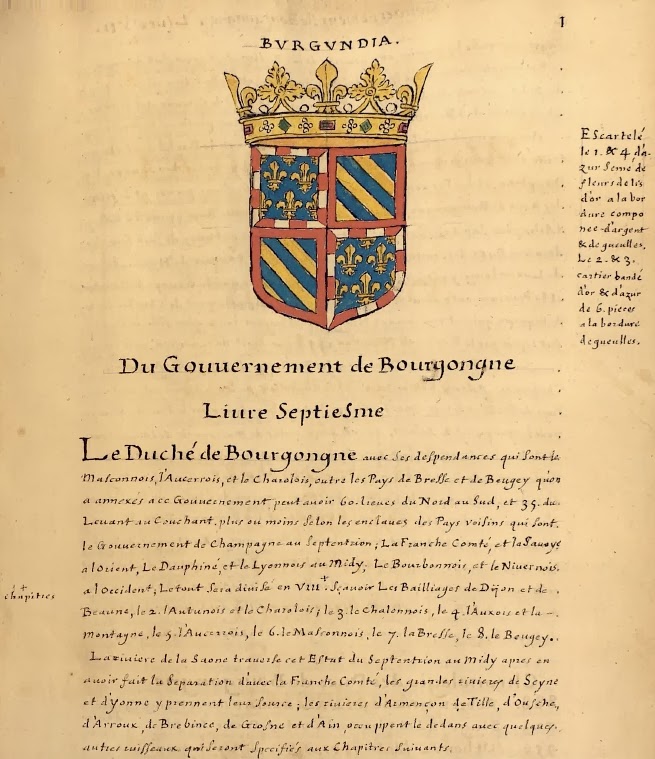 I
BVRGVNDIA.
EScartelé
le 1. & 4 d'a-
zur Semé de
fleurs de lis
d'or a la bor
dure compo
neé d'argent
& de gueulles.
Le 2. & 3.
cartier bandé
d'or & d'azur
de 6. pieces
a la bordure
de gueulles.
Du Gouuernement de Bourgongne
Liure SeptieSme
Le Duché de Bourgongne auec Ses despendances qui Sont le
Masconnois, l'Aucerrois, et le Charolois, outre les Pays de Bresse et de Beugey qu'on
a annexés a ce Gouuernement, peut auoir 60. lieues du Nord au Sud, et 35. du
Leuant au Couchant, plus ou moins Selon les enclaues des Pays voisins qui Sont,
le Gouuernement de Champagne au Septentrion; La Franche Comté, et la Sauoye
a l'Orient, Le Dauphiné, et le Lyonnois au Midy, Le Bourbonnois, et le Niuernois
a l'Occident; Le tout Sera diuisé en VIII.+ Sçauoir Les Bailliages de Dijon et de
+
chapitres
Beaune, le 2. l'Autunois et le Charolois; le 3. le Chalonnois, le 4. l'Auxois et la -
montagne, le 5. l'Aucerrois, le 6. le Masconnois, le 7. la Bresse, le 8. le Beugey.
La riuiere de la Saone trauerse cet Estat du Septentrion au Midy apres en
auoir fait la Separation d'auec la Franche Comté, les grandes riuieres de Seyne
et d'yonne y prennent leur Source; les riuieres d'Armençon de Tille, d'Ousche,
d'Arroux, de Brebince, de Grosne et d'Ain, occuppent le dedans auec quelques
autres ruisseaux qui Seront Specifiés aux Chapitres Suiuants.